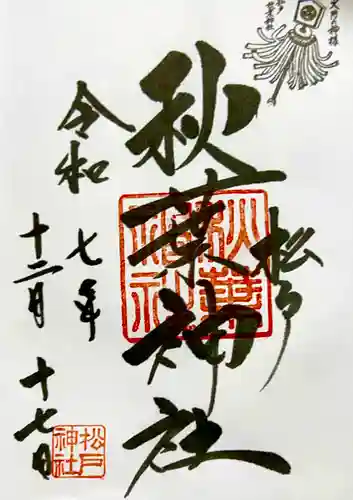 秋葉神社
松戸
令和
七年
十二月
十七日
秋葉
神社
松戸
神社